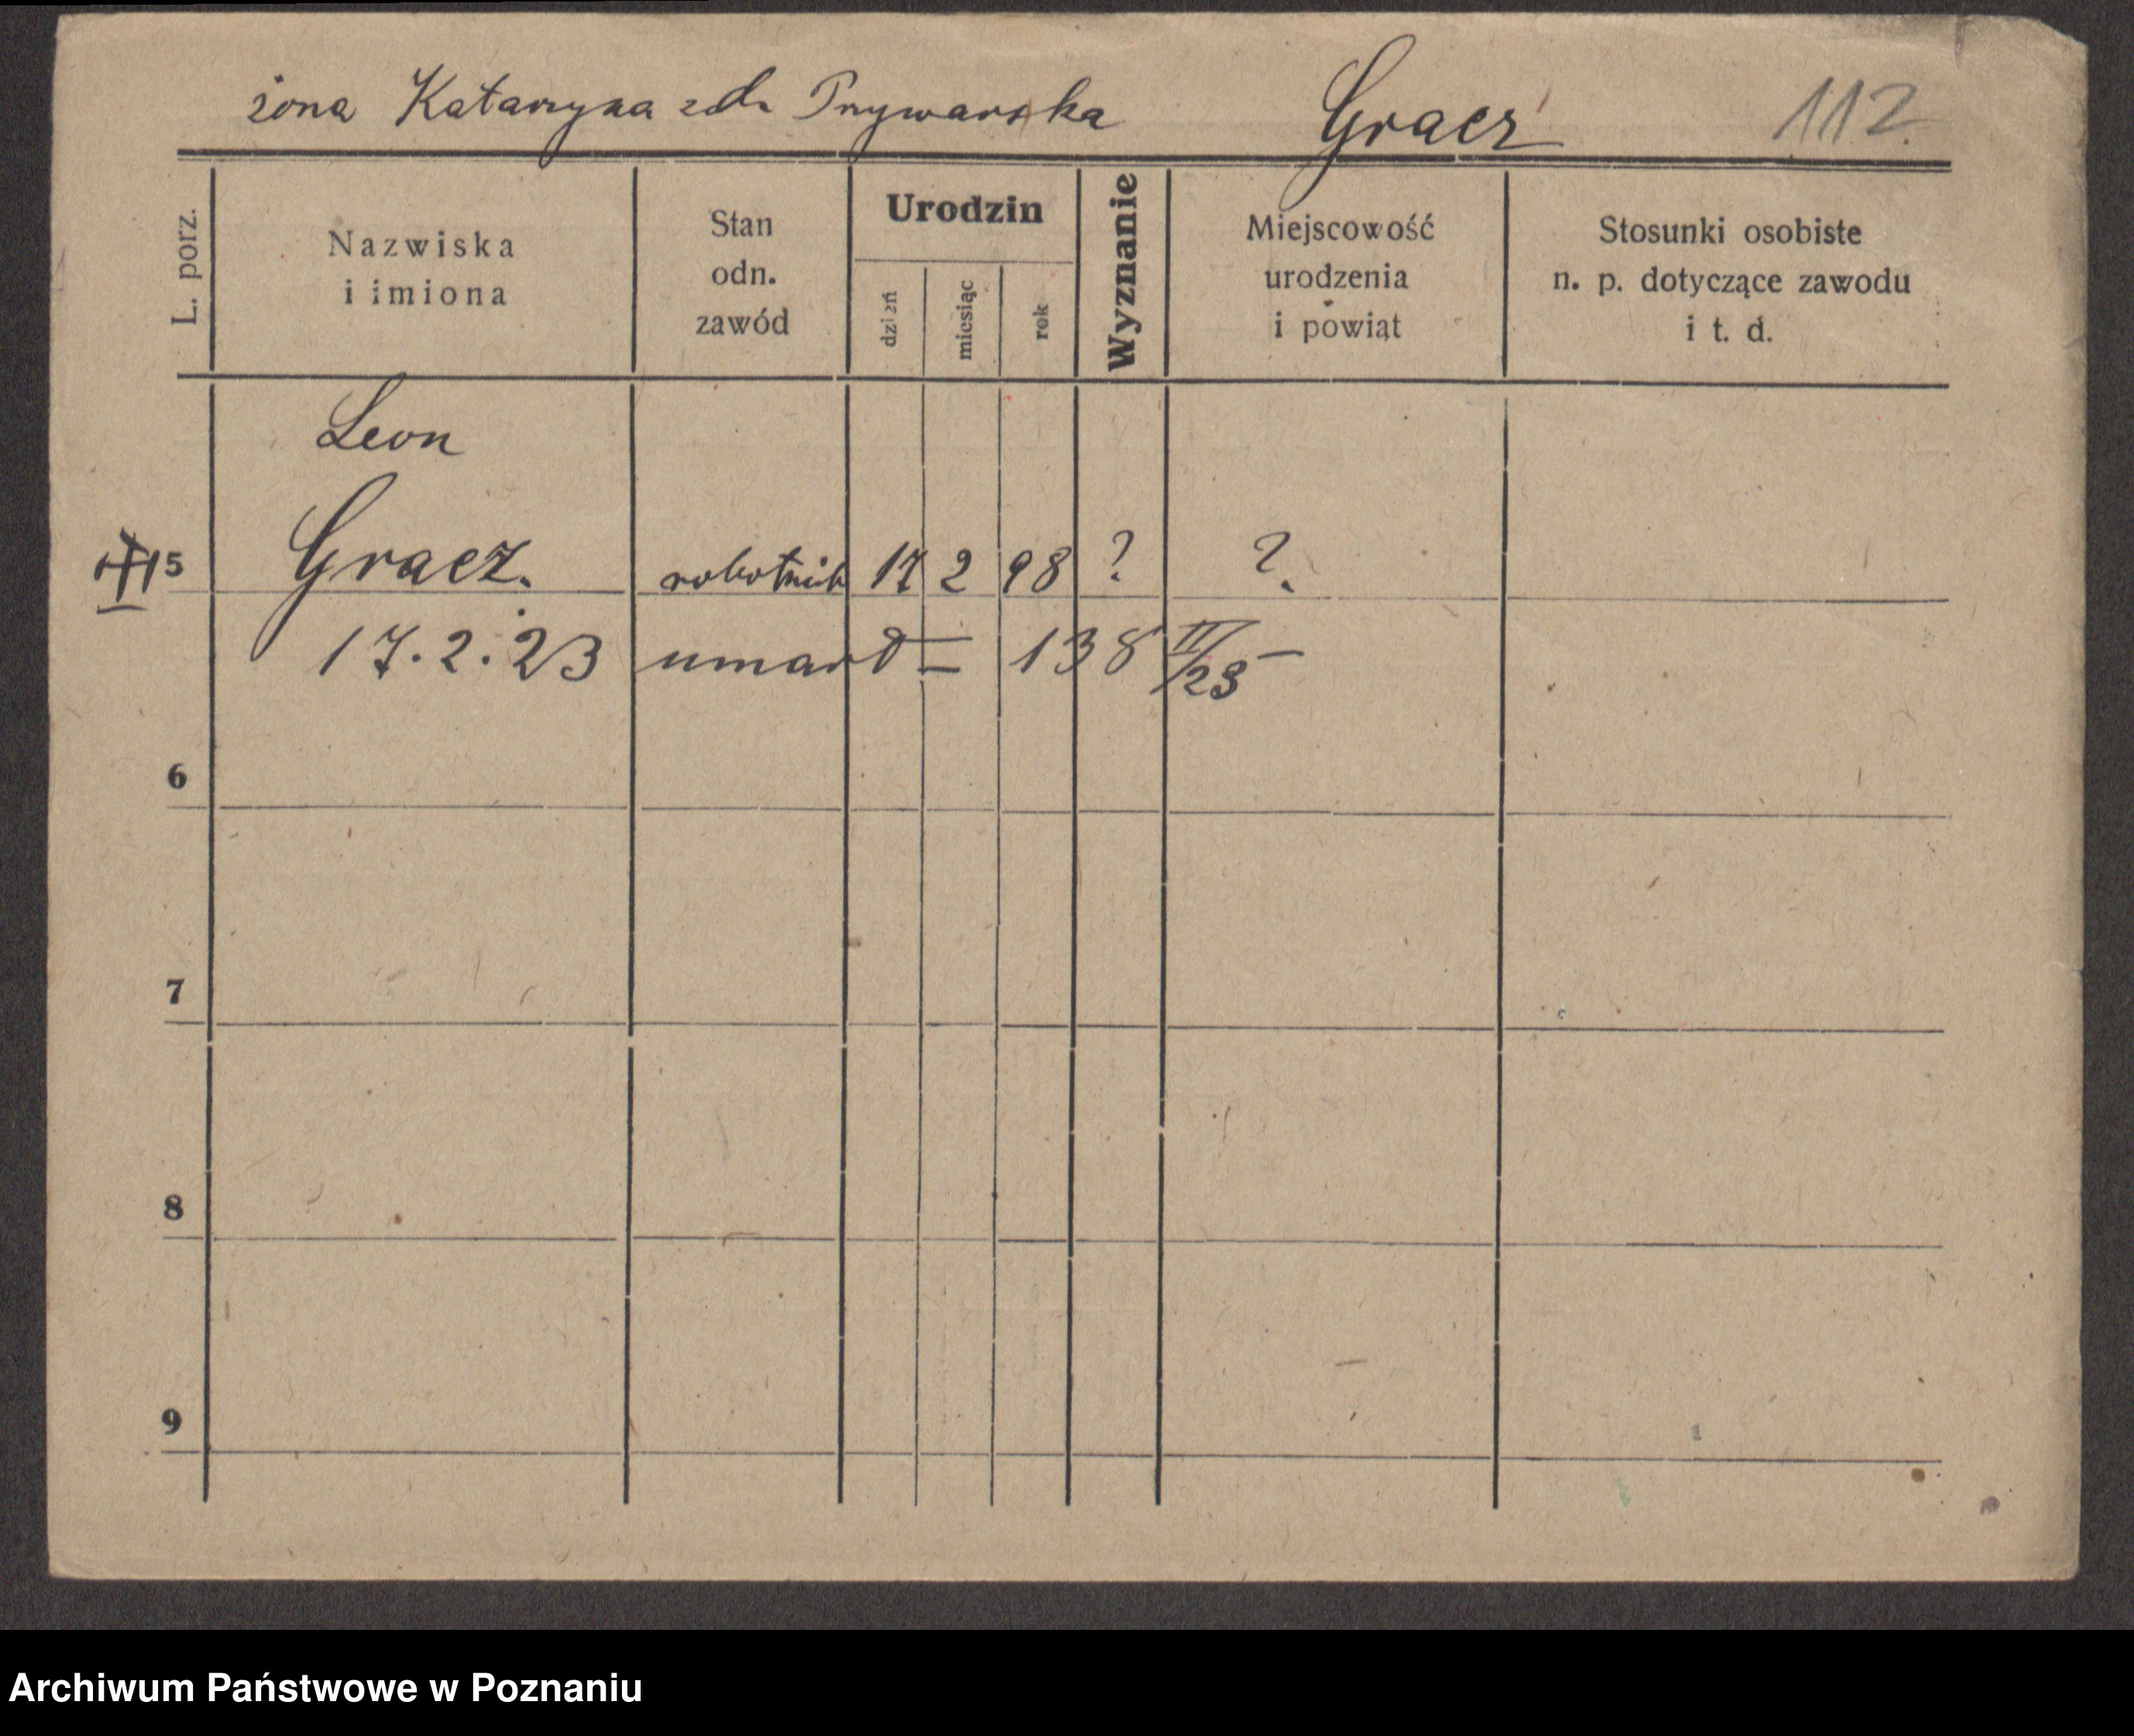 żona Katarzyna zd. Przywarska Gracz 112.
L. porz.
Nazwiska
i imiona
Stan
odn.
zawód
Urodzin
dzień
miesiąc
rok
Wyznanie
Miejscowość
urodzenia
i powiat
Stosunki osobiste
n. p. dotyczące zawodu
i t. d.
Leon
5 Gracz. robotnik 17 2 98 ? ?
17.2.23 umarł = 138 II/23 –
6
7
8
9
Archiwum Państwowe w Poznaniu